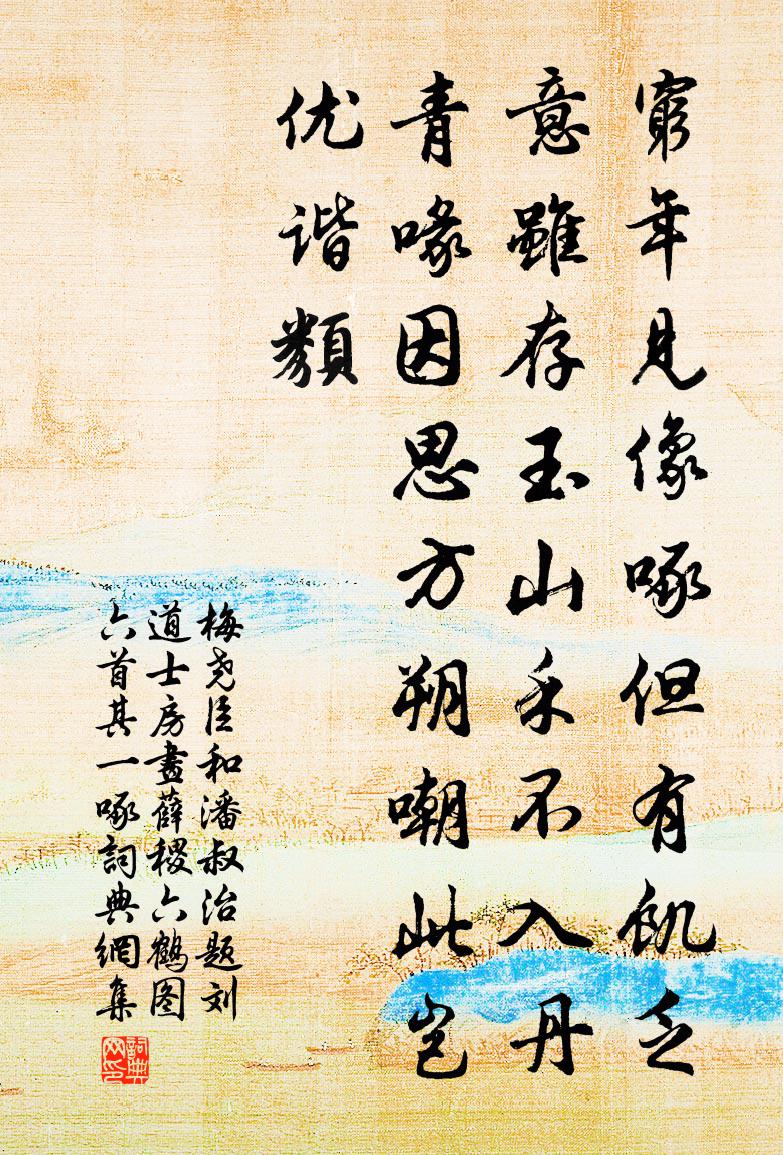 窮年见像啄但有飢乏
意雖存玉山禾不入丹
青喙因思方朔嘲此岂
优谐類
梅尧臣和潘叔治题刘
道士房畫薛稷六鶴图
六首其一啄詞典網集